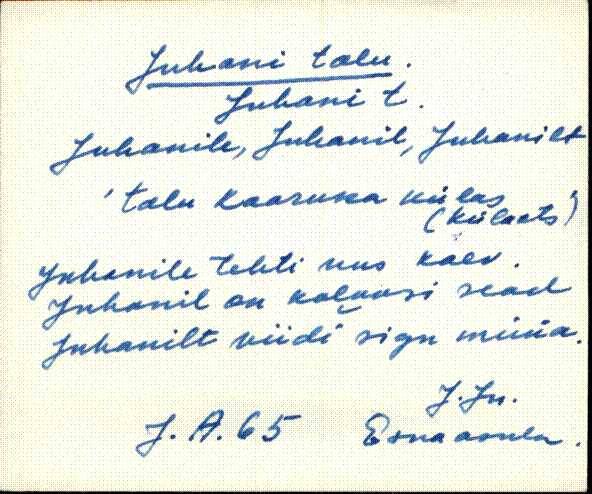 Juhani talu.
Juhani t.
Juhanile, Juhanil, Juhanilt
'talu Kaaruka külas
(külaets')
Juhanile tehti uus kaev.
Juhanil on kolhoosi sead
Juhanilt viidi sigu müüa.
J. Ju.
J. A. 65 Esnaasula.